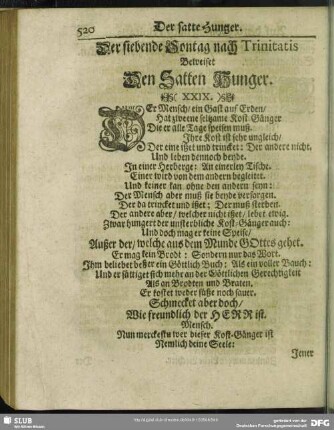 520
Der satte Hunger.
Der siebende Sontag nach Trinitatis
Beweiset
Den Satten Hunger.
XXIX.
Er Mensch/ ein Gast auf Erden/
Hat zweene seltzame Kost-Gänger
Die er alle Tage speisen muß.
Ihre Kost ist sehr ungleich/
Der eine isset und trincket: Der andere nicht.
Und leben dennoch beyde.
In einer Herberge: An einerley Tische.
Einer wird von dem andern begleitet.
Und keiner kan ohne den andern seyn:
Der Mensch aber muß sie beyde versorgen.
Der da trincket und isset; Der muß sterben.
Der andere aber/ welcher nicht isset/ lebet ewig.
Zwar hungert der unsterbliche Kost-Gänger auch:
Und doch mag er keine Speise/
Ausser der/ welche aus dem Munde GOttes gehet.
Er mag kein Brodt: Sondern nur das Wort.
Ihm beliebet besser ein Göttlich Buch: Als ein voller Bauch:
Und er sättiget sich mehr an der Göttlichen Gerechtigkeit
Als an Brodten und Braten.
Er kostet weder süsse noch sauer.
Schmecket aber doch/
Wie freundlich der HERR ist.
Mensch.
Nun mercke wer dieser Kost-Gänger ist
Nemlich deine Seele:
Jener
SLUB
DFG